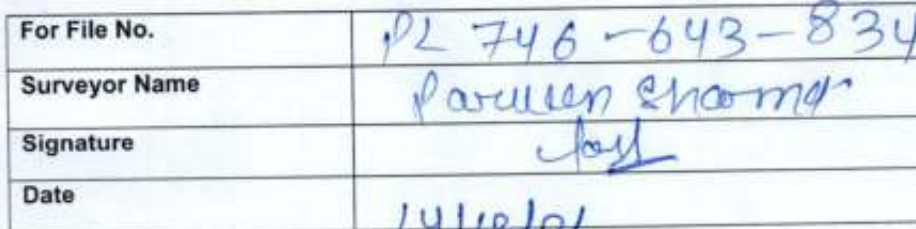 For File No. PL 746-643-834
Surveyor Name Parveen Sharma
Signature
Date